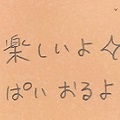 楽しいよ☆
ぱい おるよ